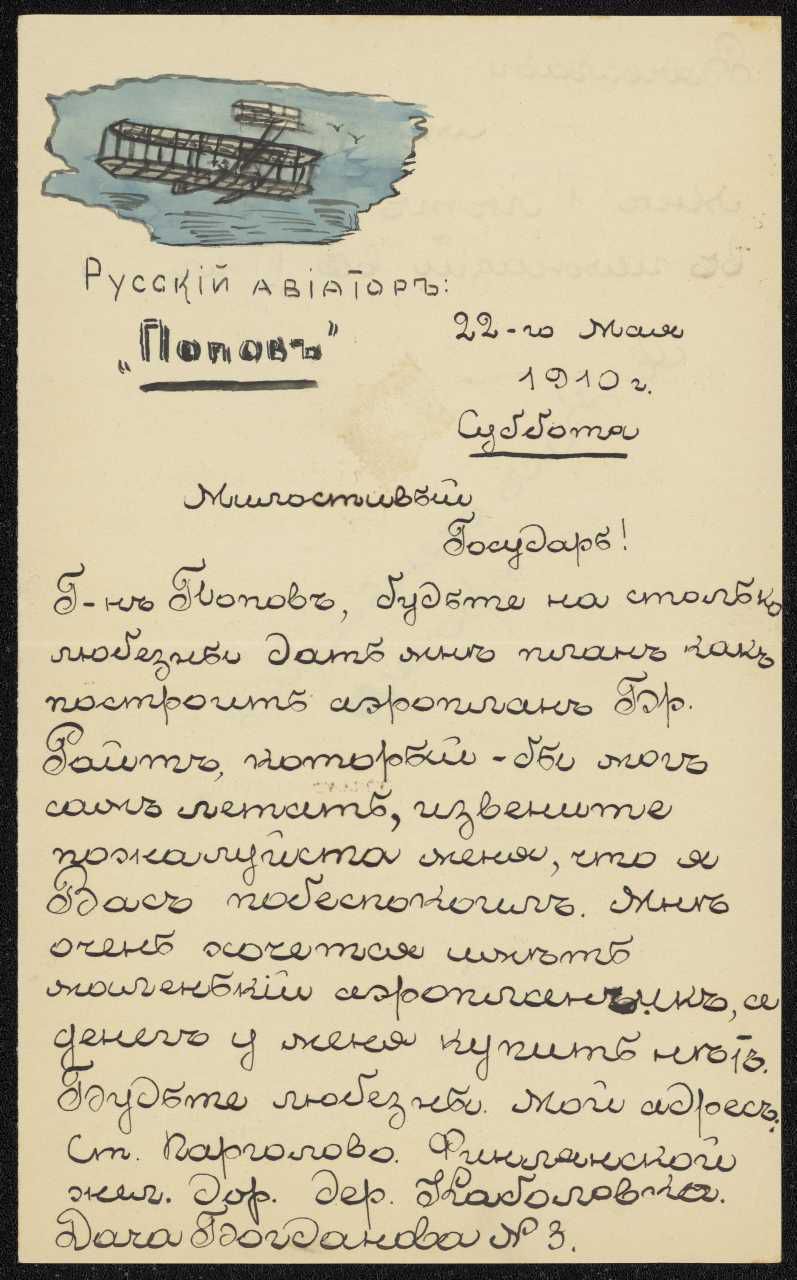 Русскій авіаторъ:
„Поповъ”
22-го Мая
1910 г.
Суббота
Милостивый
Государь!
Г-нъ Поповъ, будьте на столько
любезны дать мнѣ планъ какъ
построить аэропланъ Бр.
Райтъ, который-бы могъ
самъ летать, извените
пожалуйста меня, что я
Васъ побеспокоилъ. Мнѣ
очень хочется имѣть
маленькій аэропланчикъ, а
денегъ у меня купить нѣтъ.
Будьте любезны. Мой адресъ:
Ст. Парголово. Финлянской
жел. дор. дер. Кабаловка.
Дача Богданова № 3.